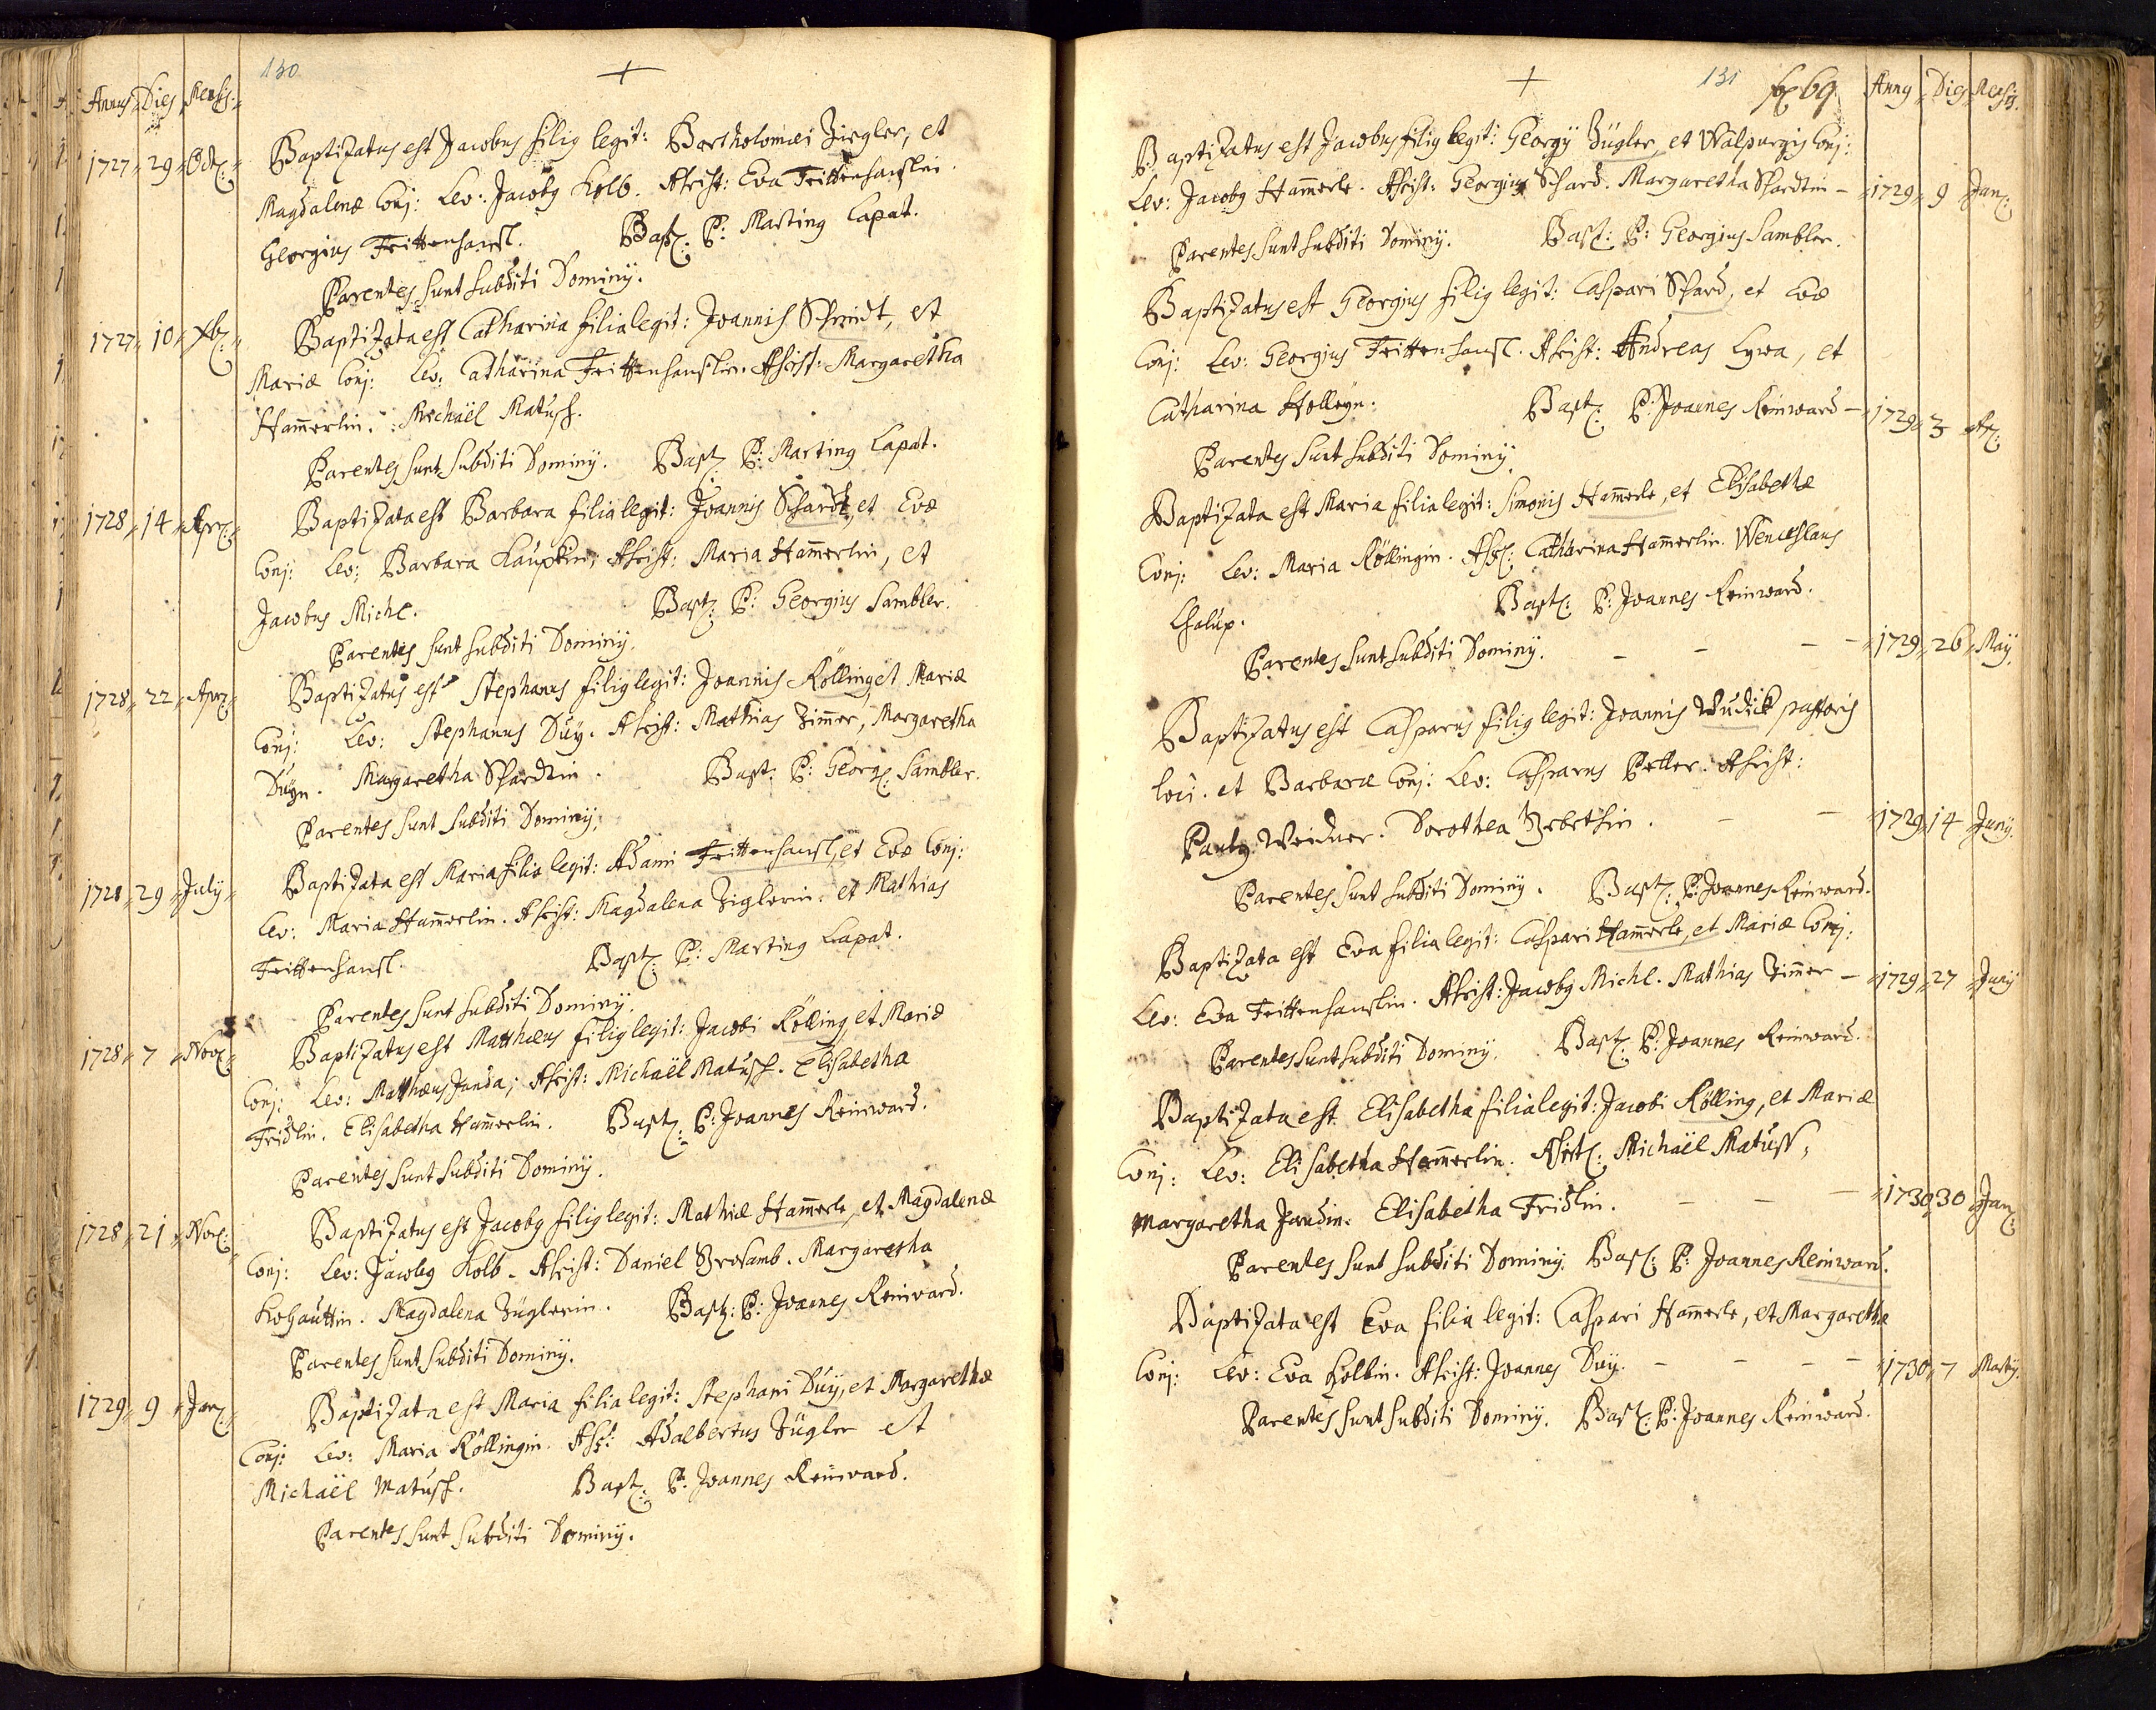 130
+
Annus Dies Mensis
1727 29 Oct:
Baptizatus est Jacobus filiq legit: Bartholomæi Ziegler, et
Magdalenæ Conj: Lev: Jacobq Kolb. Assist: Eva Trittenhanslin.
Georgius Trittenhansl. Bapt: P: Martinq Lapat.
Parentes sunt subditi Dominij.
1727 10 Xb:
Baptizata est Catharina filia legit: Joannis Schmidt, et
Mariæ Conj: Lev: Catharina Trittenhanslin. Assist: Margaretha
Ham̅erlin. Michaël Matusch.
Parentes sunt subditi Dominij. Bapt: P: Martinq Lapat.
1728 14 Apr:
Baptizata est Barbara filia legit: Joannis Schardt, et Evæ
Conj: Lev: Barbara Kaupkin; Assist: Maria Ham̅erlin, et
Jacobus Michl. Bapt: P: Georgius Sambler.
Parentes sunt subditi Dominij.
1728 22 Apr:
Baptizatus est Stephanus filiq legit: Joannis Rölling et Mariæ
Conj: Lev: Stephanus Duÿ. Assist: Mathias Zim̅er, Margaretha
Duÿn. Margaretha Schardtin. Bapt: P: Georg: Sambler.
Parentes sunt subditi Dominij.
1728 29 July
Baptizata est Maria filia legit: Adami Trittenhansl, et Evæ Conj:
Lev: Maria Ham̅erlin. Assist: Magdalena Ziglerin. et Mathias
Trittenhansl. Bapt: P: Martinq Lapat.
Parentes sunt subditi Dominij.
1728 7 Nov:
Baptizatus est Matthæus filiq legit: Jacobi Rölling et Mariæ
Conj: Lev: Matthæus Janda; Assist: Michaël Matusch. Elisabetha
Fridlin. Elisabetha Ham̅erlin. Bapt: P: Joannes Reinward.
Parentes sunt subditi Dominij.
1728 21 Nov:
Baptizatus est Jacobq filiq legit: Mathiæ Ham̅erle, et Magdalenæ
Conj: Lev: Jacobq Kolb. Assist: Daniel Brosamb. Margaretha
Kohauttin. Magdalena Züglerin. Bapt: P: Joannes Reinward.
Parentes sunt subditi Dominij.
1729 9 Jan:
Baptizata est Maria filia legit: Stephani Duÿ, et Margarethæ
Conj: Lev: Maria Röllingin. Ass: Adalbertus Zügler et
Michaël Matusch. Bapt: P: Joannes Reinward.
Parentes sunt subditi Dominij.
+
131 69
Annq Dies Mensis
Baptizatus est Jacobus filiq legit: Georgÿ Zügler, et Walpurgis Conj:
Lev: Jacobq Ham̅erle. Assist: Georgius Schard. Margaretha Schardtin – 1729 9 Jan:
Parentes sunt subditi Dominij. Bapt: P: Georgius Sambler.
Baptizatus est Georgius filiq legit: Caspari Schard, et Evæ
Conj: Lev: Georgius Trittenhansl. Assist: Andreas Lywa, et
Catharina Hölleyn. Bapt: P: Joannes Reinward – 1729 3
Parentes sunt subditi Dominij.
Baptizata est Maria filia legit: Simonis Ham̅erle, et Elisabethæ
Conj: Lev: Maria Röllingin. Ass: Catharina Ham̅erlin. Wenceslaus
Chalup. Bapt: P: Joannes Reinward.
Parentes sunt subditi Dominij. – – – 1729 26 May
Baptizatus est Casparus filiq legit: Joannis Wudick pastoris
loci. et Barbaræ Conj: Lev: Casparus Petter. Assist:
Paulq Weidner. Dorothea – – 1729 14 Junÿ.
Parentes sunt subditi Dominij. Bapt: P: Joannes Reinward.
Baptizata est Eva filia legit: Caspari Ham̅erle, et Mariæ Conj:
Lev: Eva Trittenhanslin. Assist: Jacobq Michl. Mathias Zim̅er – 1729 27 Junÿ
Parentes sunt subditi Dominij. Bapt: P: Joannes Reinward.
Baptizata est Elisabetha filia legit: Jacobi Rölling, et Mariæ
Conj: Lev: Elisabetha Ham̅erlin. Assist: Michaël Matuss,
Margaretha Jandin. Elisabetha Fridlin. – – – 1730 30 Jan:
Parentes sunt subditi Dominij. Bapt: P: Joannes Reinward.
Baptizata est Eva filia legit: Caspari Ham̅erle, et Margarethæ
Conj: Lev: Eva Kolbin. Assist: Joannes Duÿ. – – – – 1730 7 Martÿ.
Parentes sunt subditi Dominij. Bapt: P: Joannes Reinward.